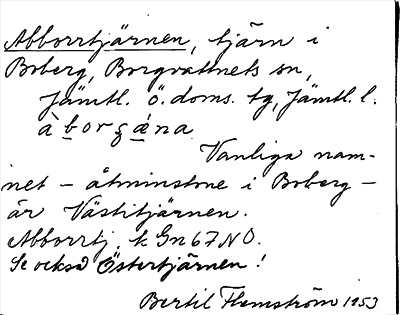 Abborrtjärnen, tjärn i
Boberg, Borgvattnets sn,
Jämtl. ö. doms. tg, Jämtl. l.
àborgǽna
Vanliga nam-
net – åtminstone i Boberg –
är Västitjärnen.
Abborrtj. k Gn67NO.
Se också Östertjärnen!
Bertil Flemström 1953